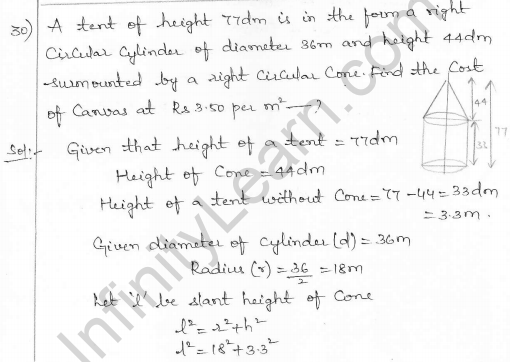 30) A tent of height 77dm is in the form a right
Circular Cylinder of diameter 36m and height 44dm
surmounted by a right Circular Cone. Find the Cost
of Canvas at Rs 3.50 per m² —?
44
77
33
Sol:- Given that height of a tent = 77dm
Height of Cone = 44dm
Height of a tent without Cone = 77 - 44 = 33dm
= 3.3m.
Given diameter of cylinder (d) = 36m
Radius (r) = 36/2 = 18m
Let 'l' be slant height of Cone
l² = r² + h²
l² = 18² + 3.3²
InfinityLearn.com